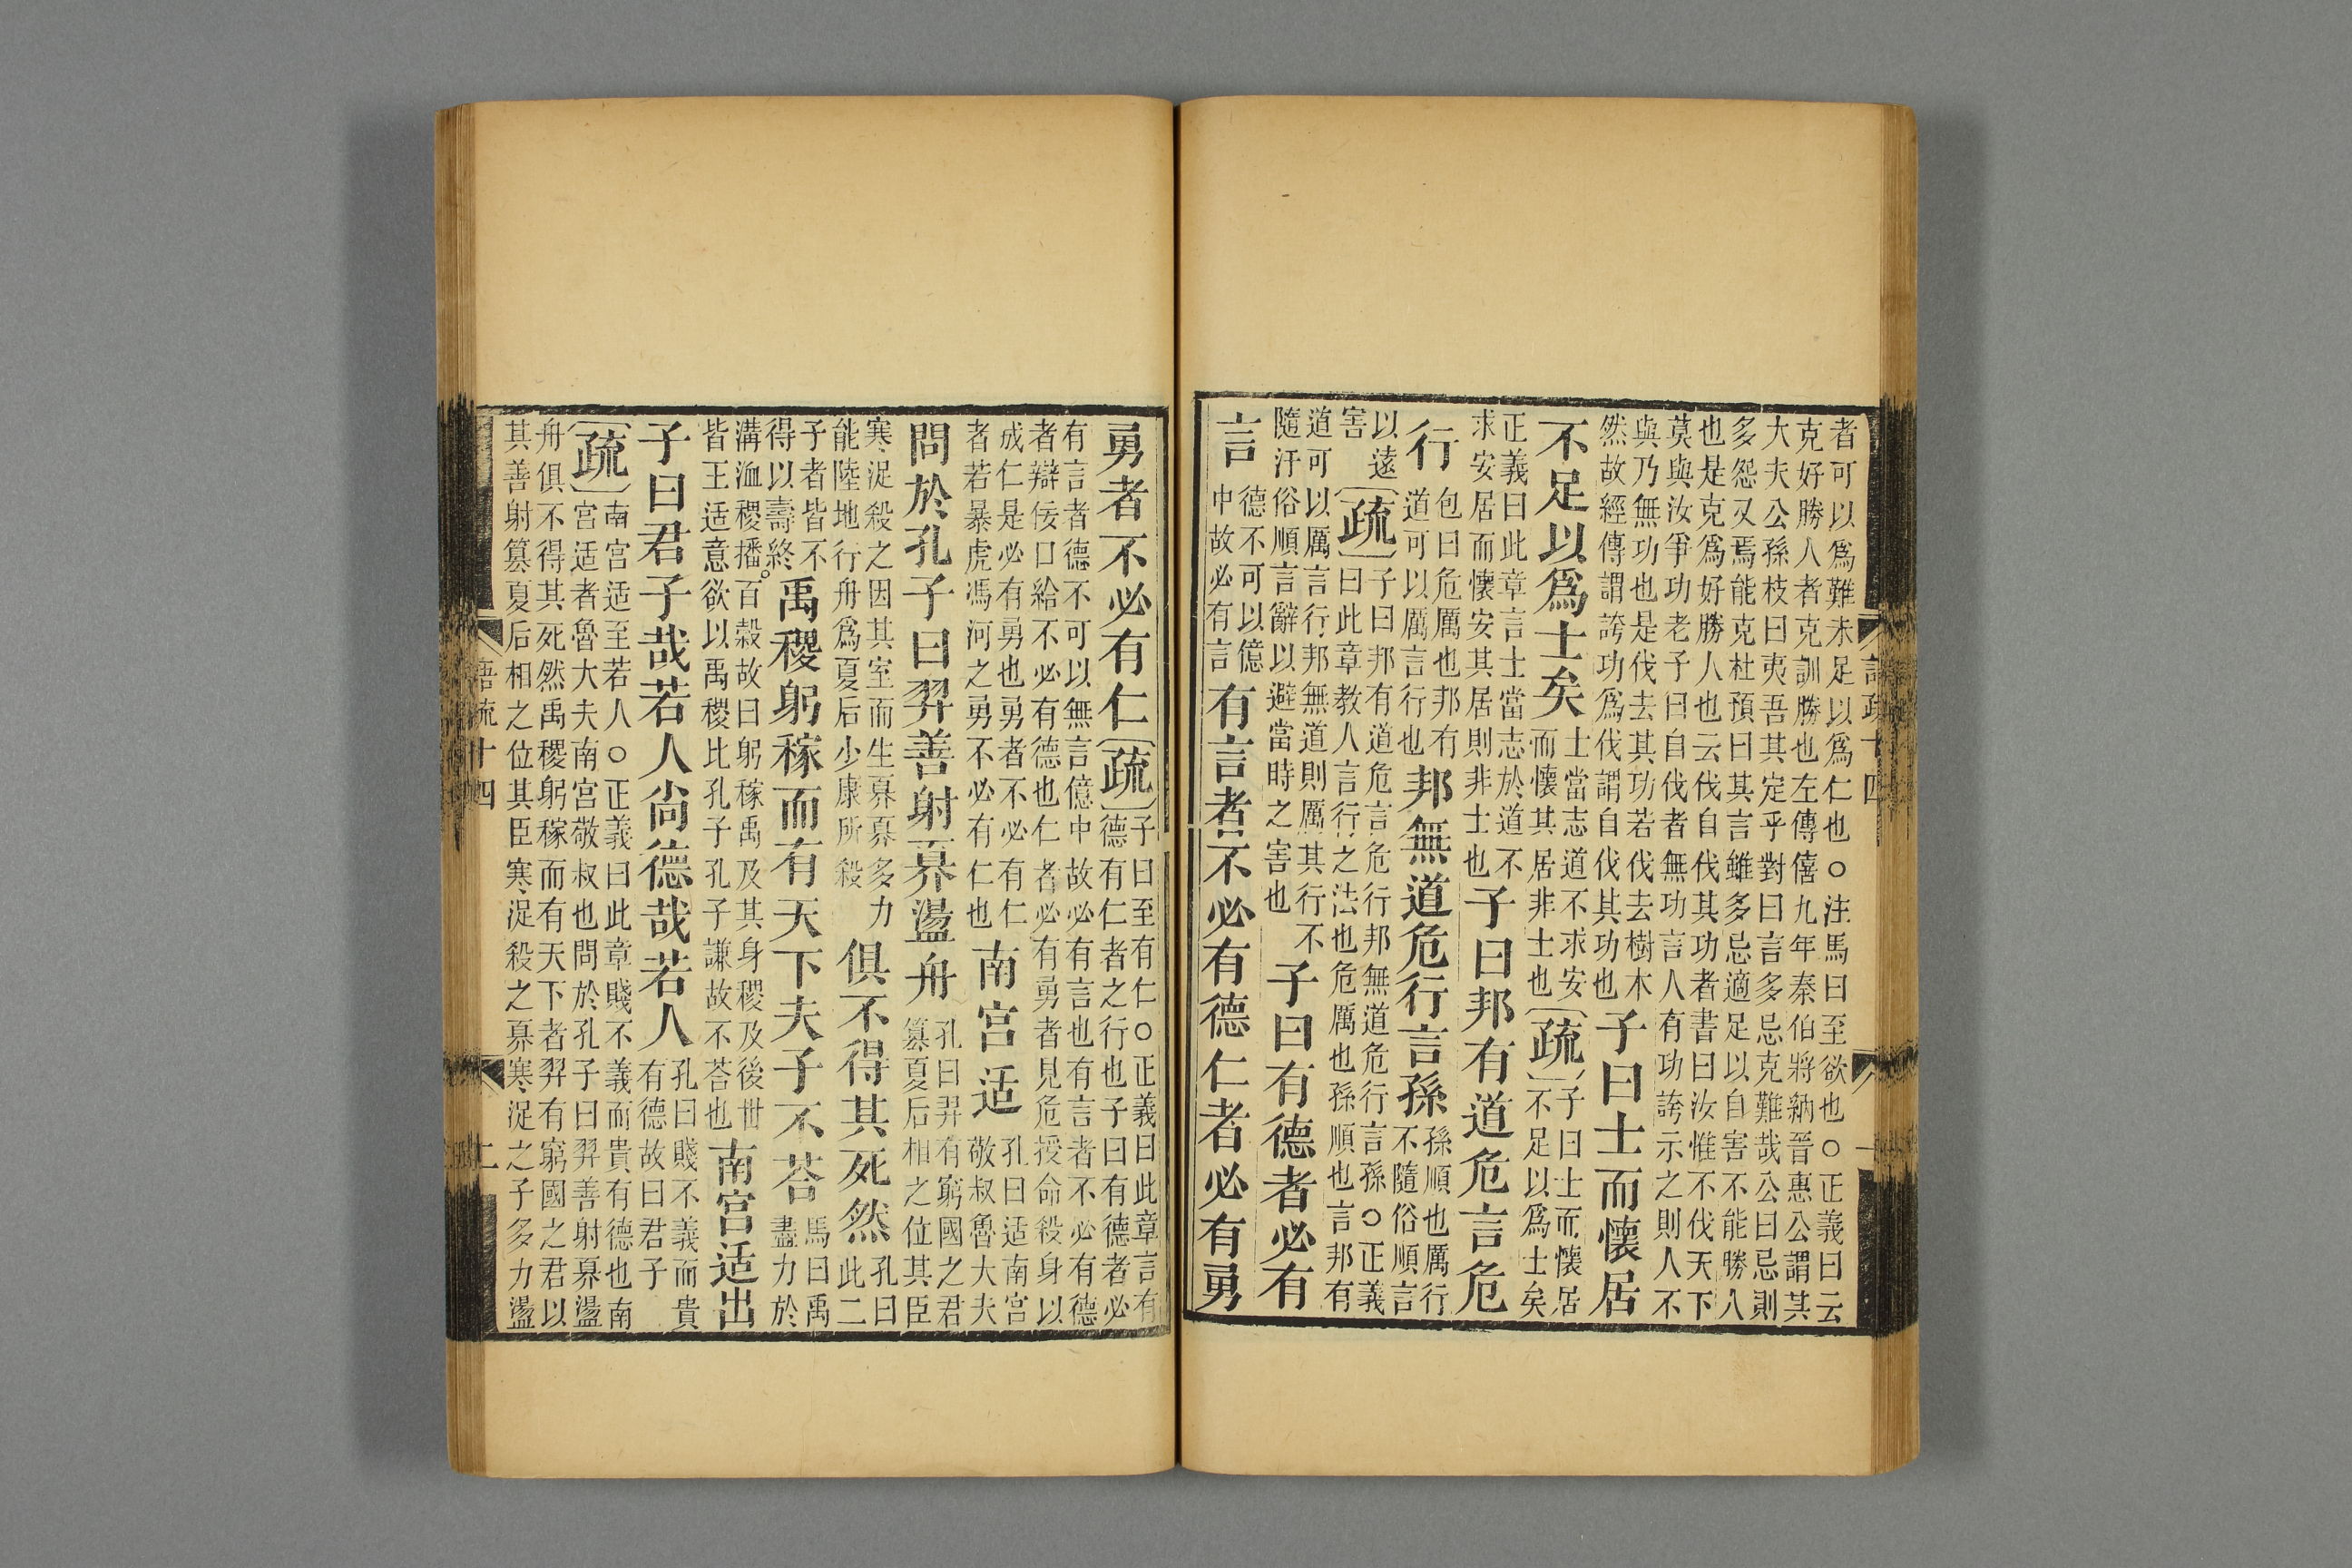 語疏十四
者可以爲難未足以爲仁也○注馬曰至欲也○正義曰云
克好勝人者克訓勝也左傳僖九年秦伯將納晉惠公謂其
大夫公孫枝曰夷吾其定乎對曰言多忌克難哉公曰忌則
多怨又焉能克杜預曰其言雖多忌適足以自害不能勝人
也是克爲好勝人也云伐自伐其功者書曰汝惟不伐天下
莫與汝爭功老子曰自伐者無功言人有功誇示之則人不
與乃無功也是伐去其功若伐去樹木
然故經傳謂誇功爲伐謂自伐其功也
子曰士而懷居
不足以爲士矣
士當志道不求安
而懷其居非士也
疏
子曰士而懷居
不足以爲士矣
正義曰此章言士當志於道不
求安居而懷安其居則非士也
子曰邦有道危言危
行
包曰危厲也邦有
道可以厲言行也
邦無道危行言孫
孫順也厲行
不隨俗順言
以遠
害
疏
子曰邦有道危言危行邦無道危行言孫○正義
曰此章教人言行之法也危厲也孫順也言邦有
道可以厲言行邦無道則厲其行不
隨汙俗順言辭以避當時之害也
子曰有德者必有
言
德不可以億
中故必有言
有言者不必有德仁者必有勇
勇者不必有仁
疏
子曰至有仁○正義曰此章言有
德有仁者之行也子曰有德者必
有言者德不可以無言億中故必有言也有言者不必有德
者辯佞口給不必有德也仁者必有勇者見危授命殺身以
成仁是必有勇也勇者不必有仁
者若暴虎馮河之勇不必有仁也
南宫适
孔曰适南宫
敬叔魯大夫
問於孔子曰羿善射奡盪舟
孔曰羿有窮國之君
篡夏后相之位其臣
寒浞殺之因其室而生奡奡多力
能陸地行舟爲夏后少康所殺
俱不得其死然
孔曰
此二
子者皆不
得以壽終
禹稷躬稼而有天下夫子不荅
馬曰禹
盡力於
溝洫稷播百穀故曰躬稼禹及其身稷及後世
皆王适意欲以禹稷比孔子孔子謙故不荅也
南宫适出
子曰君子哉若人尚德哉若人
孔曰賤不義而貴
有德故曰君子
疏
南宫适至若人○正義曰此章賤不義而貴有德也南
宫适者魯大夫南宫敬叔也問於孔子曰羿善射奡盪
舟俱不得其死然禹稷躬稼而有天下者羿有窮國之君以
其善射篡夏后相之位其臣寒浞殺之奡寒浞之子多力盪
語疏十四
二